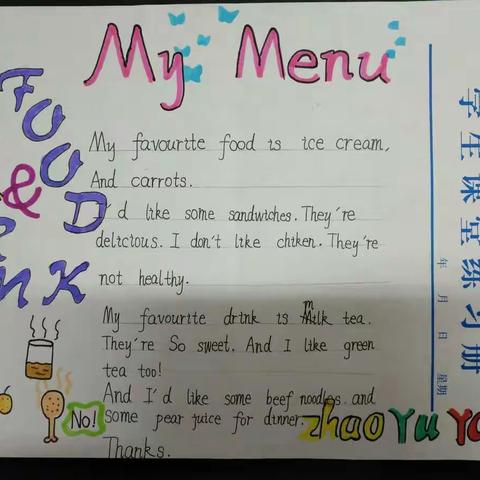 My Menu
FOOD
&
NK
My favourite food is ice cream,
And carrots.
I'd like some sandwiches. They're
delicious. I don't like chiken. They're
not healthy.
My favourite drink is milk tea.
They're So sweet. And I like green
tea too!
And I'd like some beef noodles and
some pear juice for dinner.
Thanks.
No!
zhao Yu Ya
学生课堂练习册
年 月 日 星期